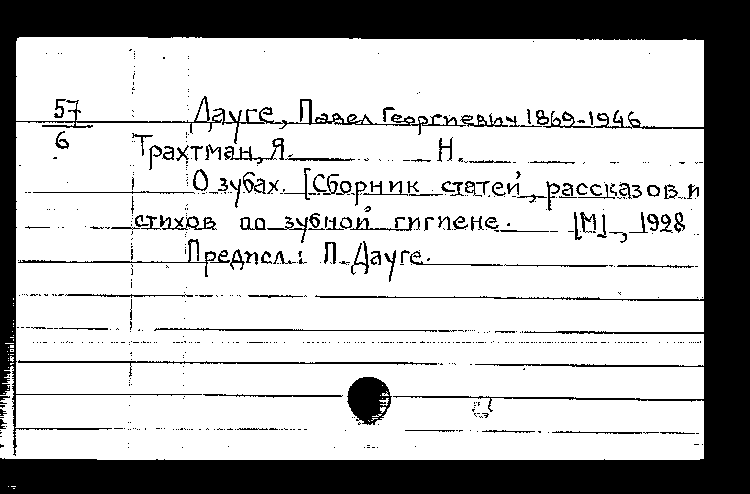 57 Дауге, Павел Георгиевич 1869-1946
6 Трахтман, Я. Н.
О зубах. [Сборник статей, рассказов и
стихов по зубной гигиене. [М], 1928
Предисл.: П. Дауге.